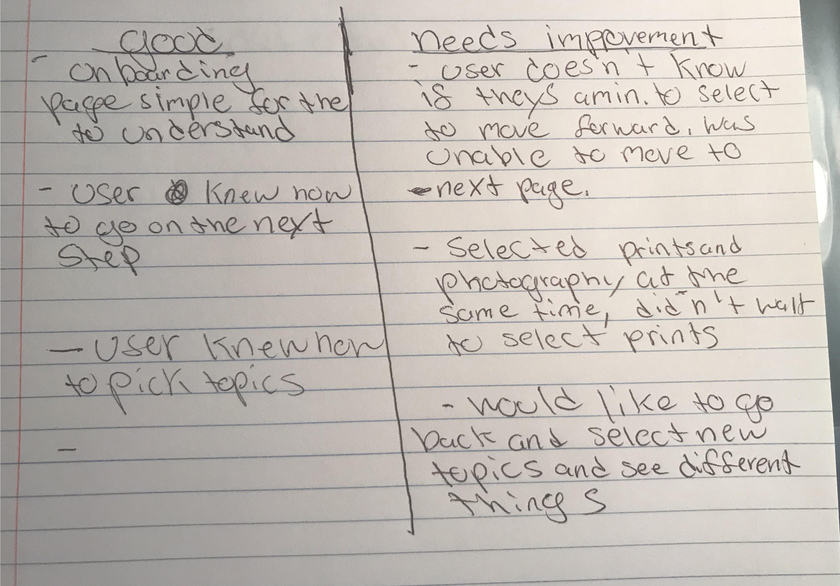 good
- onboarding
page simple for the
to understand
- User knew how
to go on the next
step
- User knew how
to pick topics
-
needs impovement
- User doesn't know
if theys amin. to select
to move forward. was
unable to move to
next page.
- Selected prints and
photography at the
same time, didn't wait
to select prints
- would like to go
back and select new
topics and see different
things